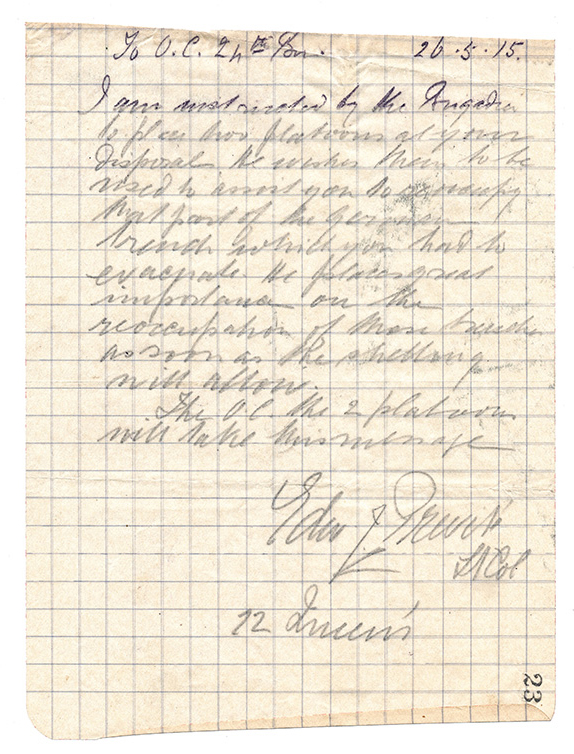 To O.C. 24th Bn. 26.5.15.
I am instructed by the Brigadier
to place two platoons at your
disposal. He wishes them to be
used to assist you to reoccupy
that part of the German
trench which you had to
evacuate. He places great
importance on the
reoccupation of those trenches
as soon as the shelling
will allow.
The O.C. the 2 platoons
will take this message
Edw J Previté
Lt Col
22 Queen's
23